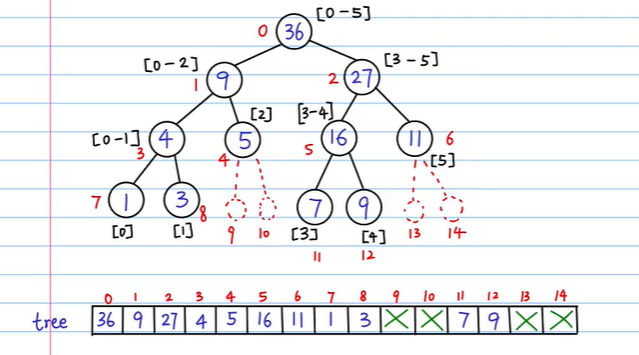 0 36 [0-5]
[0-2] 1 9
2 27 [3-5]
[0-1] 3 4
4 5 [2]
[3-4] 5 16
11 6 [5]
7 1 [0]
3 8 [1]
9 10
7 [3] 11
9 [4] 12
13 14
0 1 2 3 4 5 6 7 8 9 10 11 12 13 14
tree 36 9 27 4 5 16 11 1 3 X X 7 9 X X